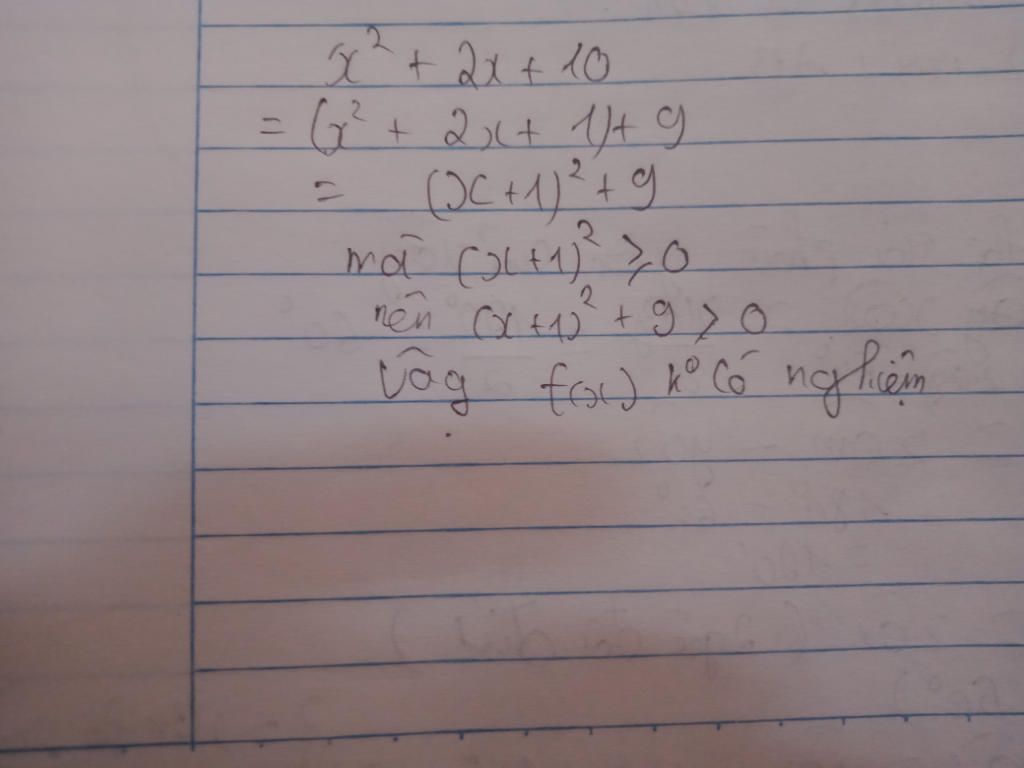 x² + 2x + 10
= (x² + 2x + 1) + 9
= (x+1)² + 9
mà (x+1)² ⩾ 0
nên (x+1)² + 9 > 0
Vậy f(x) k⁰ có nghiệm